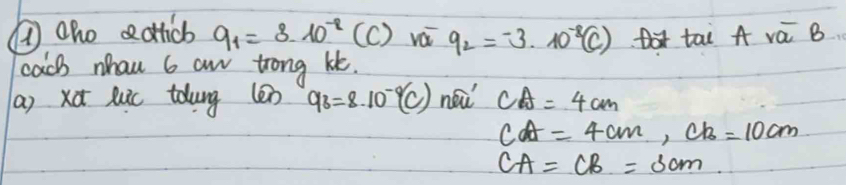 ① Cho 2 đtích q₁ = 3.10⁻⁸ (C) và q₂ = -3.10⁻⁸(C) Đặt tại A và B
cách nhau 6 cm trong kk.
a) xđ lực tdụng lên q₃=8.10⁻⁹(C) nếu CA = 4cm
CA = 4cm, CB = 10cm
CA = CB = 3cm.